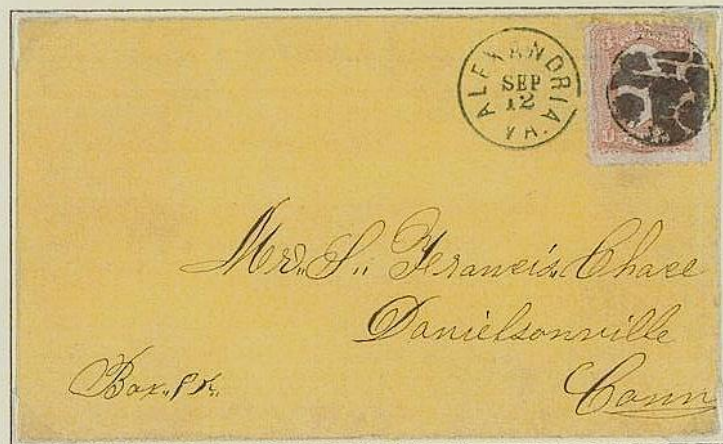 ALEXANDRIA VA.
SEP
12
Mr. S. Francis Chace
Danielsonville
Conn
Box